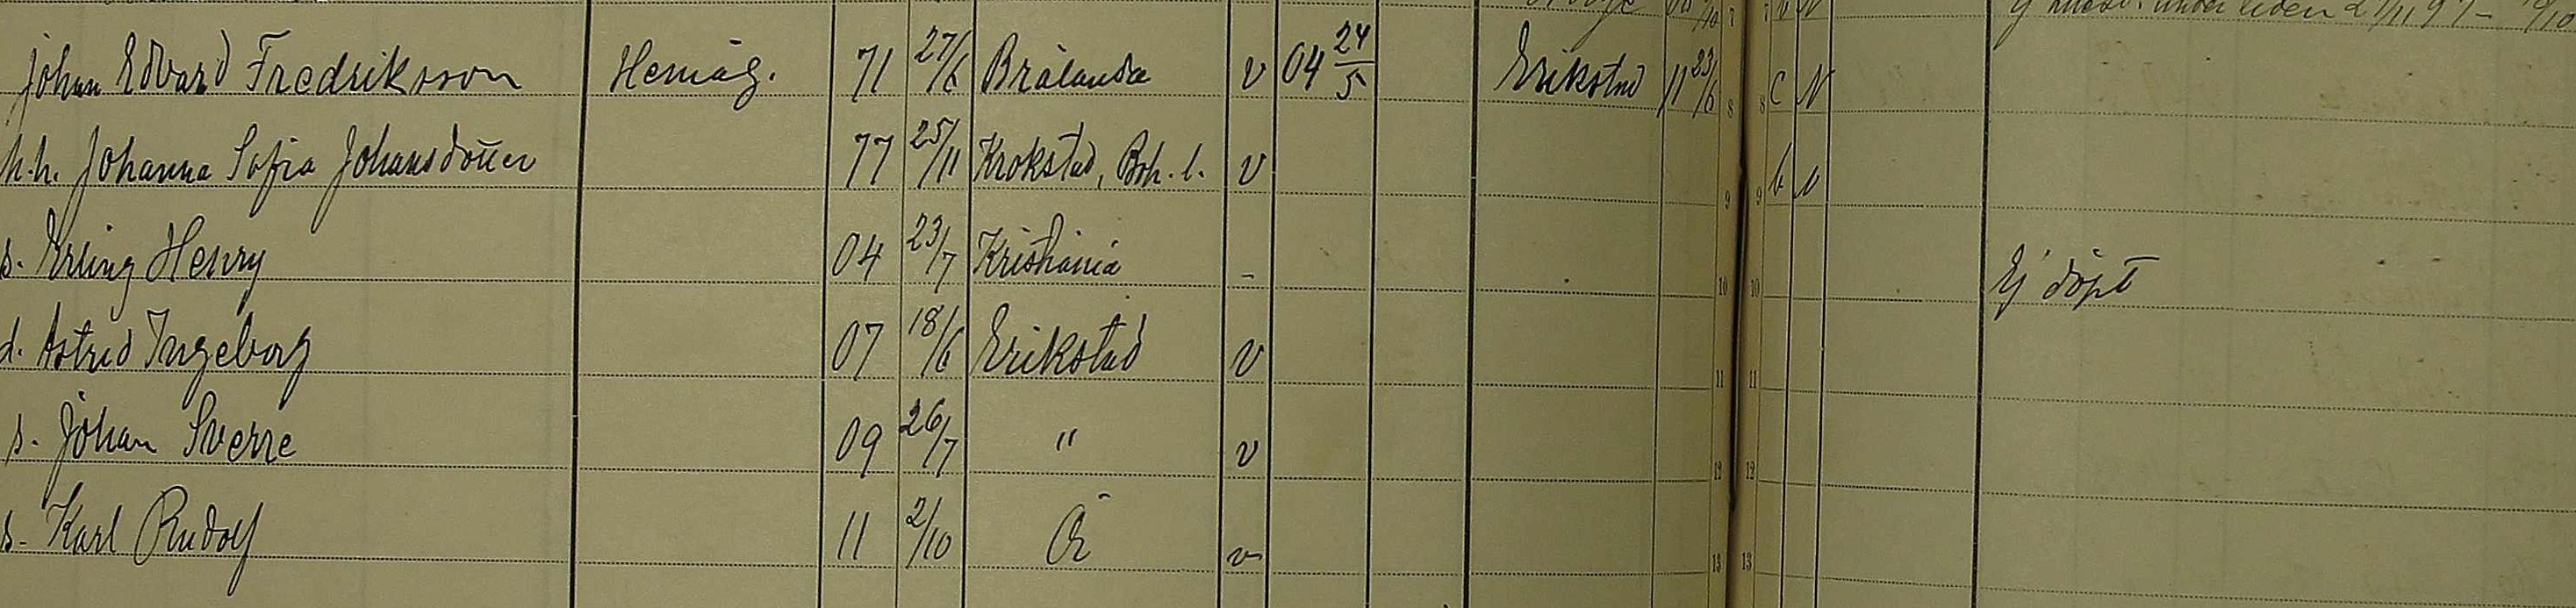 ej under tiden 2/11 97 –
Johan Edvard Fredriksson Hemäg. 71 27/6 Brålanda v 04 24/5 Erikstad 11 23/6 8 8 c N
h.h. Johanna Sofia Johansdotter 77 25/11 Krokstad, Boh. l. v 9 9 b N
s. Erling Henry 04 23/7 Kristiania - 10 10 Ej döpt
d. Astrid Ingeborg 07 18/6 Erikstad v 11 11
s. Johan Sverre 09 26/7 " v 12 12
s. Karl Rudolf 11 2/10 Ör v 13 13